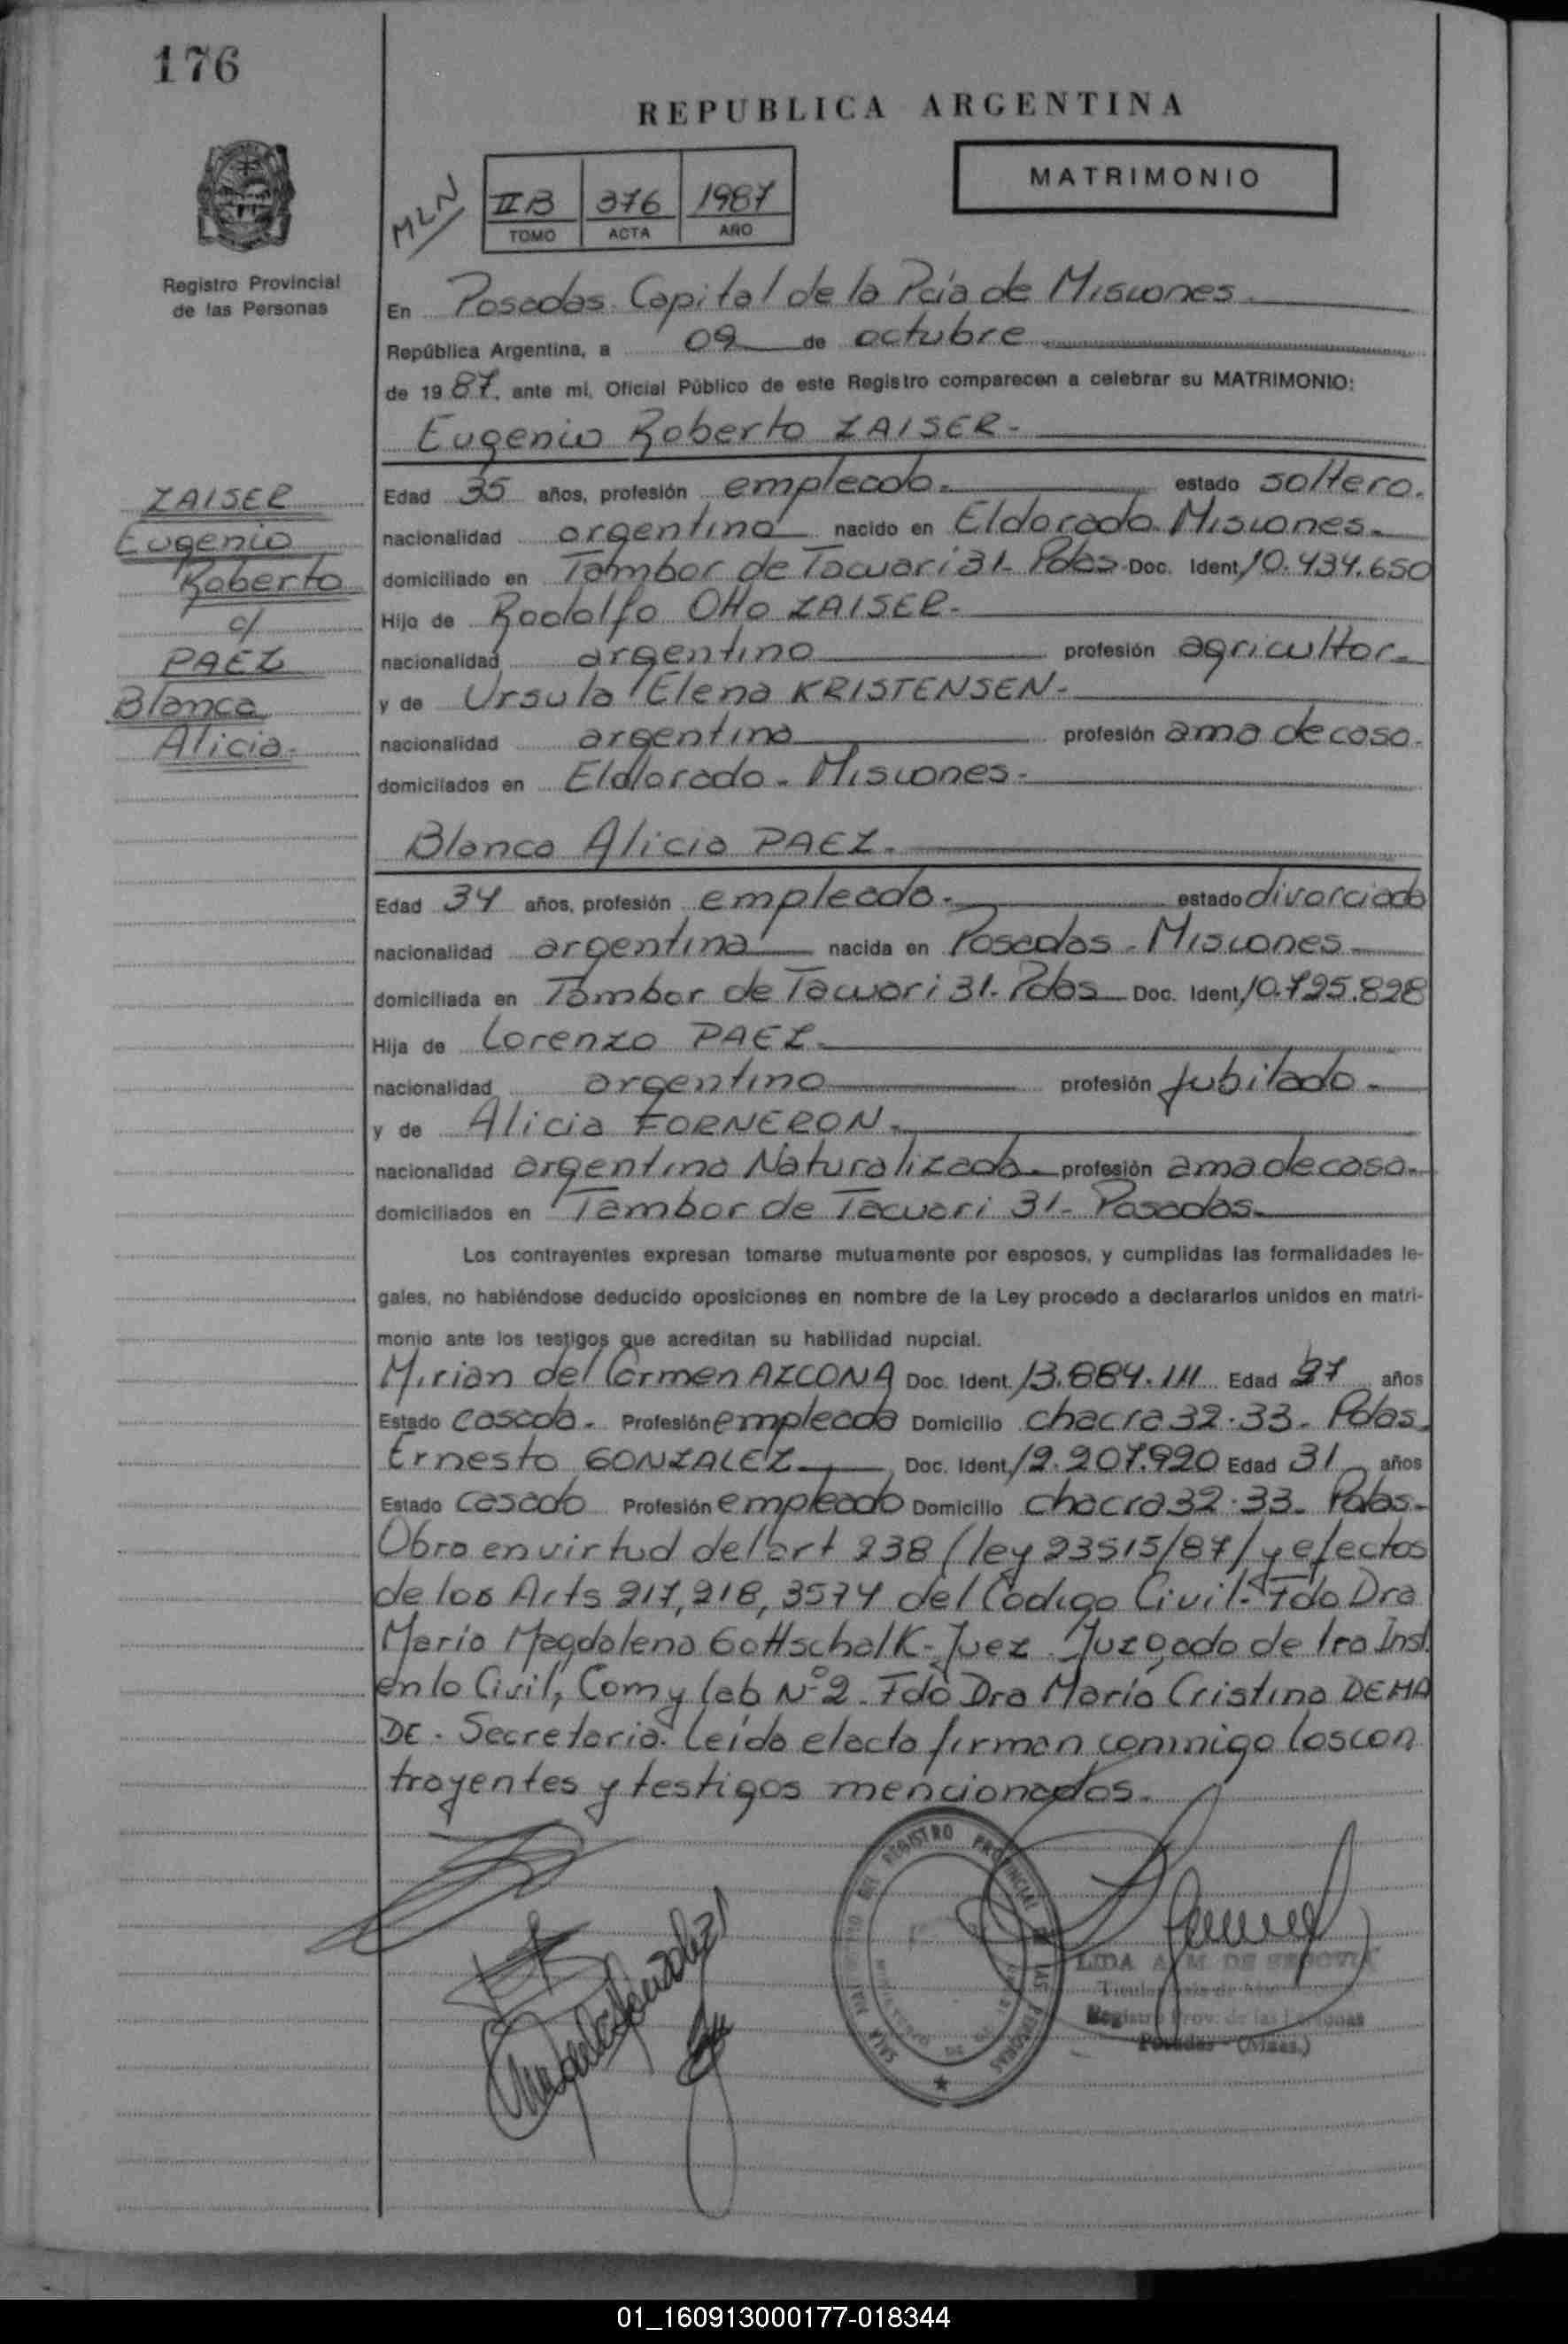 176
REPUBLICA ARGENTINA
MATRIMONIO
MLN
II B 376 1987
TOMO ACTA AÑO
Registro Provincial
de las Personas
En Posadas. Capital de la Pcia de Misiones.
República Argentina, a 09 de octubre
de 19 87, ante mi, Oficial Público de este Registro comparecen a celebrar su MATRIMONIO:
Eugenio Roberto ZAISER.-
ZAISER
Eugenio
Roberto
c/
PAEZ
Blanca
Alicia.-
Edad 35 años, profesión empleado.- estado soltero.
nacionalidad argentino nacido en Eldorado. Misiones.-
domiciliado en Tambor de Tacuari 31- Pdas. Doc. Ident. 10.434.650
Hijo de Rodolfo Otto ZAISER.-
nacionalidad argentino profesión agricultor.-
y de Ursula Elena KRISTENSEN.-
nacionalidad argentina profesión ama de casa.
domiciliados en Eldorado.- Misiones.-
Blanca Alicia PAEZ.-
Edad 34 años, profesión empleada.- estado divorciada
nacionalidad argentina nacida en Posadas.- Misiones
domiciliada en Tambor de Tacuari 31- Pdas Doc. Ident. 10.795.828
Hija de Lorenzo PAEZ.
nacionalidad argentino profesión jubilado.-
y de Alicia FORNERON.-
nacionalidad argentina Naturalizada profesión ama de casa.
domiciliados en Tambor de Tacuari 31- Posadas.
Los contrayentes expresan tomarse mutuamente por esposos, y cumplidas las formalidades le-
gales, no habiéndose deducido oposiciones en nombre de la Ley procedo a declararlos unidos en matri-
monio ante los testigos que acreditan su habilidad nupcial.
Mirian del Carmen AZCONA Doc. Ident. 13.884.111 Edad 27 años
Estado casada.- Profesión empleada Domicilio chacra 32-33.- Pdas.
Ernesto GONZALEZ Doc. Ident. 12.207.920 Edad 31 años
Estado casado Profesión empleado Domicilio chacra 32-33.- Pdas.-
Obra en virtud del art 238 (ley 23515/87) y efectos
de los Arts 217, 218, 3574 del Codigo Civil.- Fdo Dra
Maria Magdalena Gottschalk- Juez. Juzgado de 1ra Inst.
en lo Civil, Com y lab Nº 2. Fdo Dra Maria Cristina DEMA
DE. Secretaria. Leida el acta firman conmigo los con
trayentes y testigos mencionados.
REGISTRO PROVINCIAL DE LAS PERSONAS
LIDA A. M. DE SEGOVIA
Registro Prov. de las Personas
Posadas - (Mnes.)
01_160913000177-018344